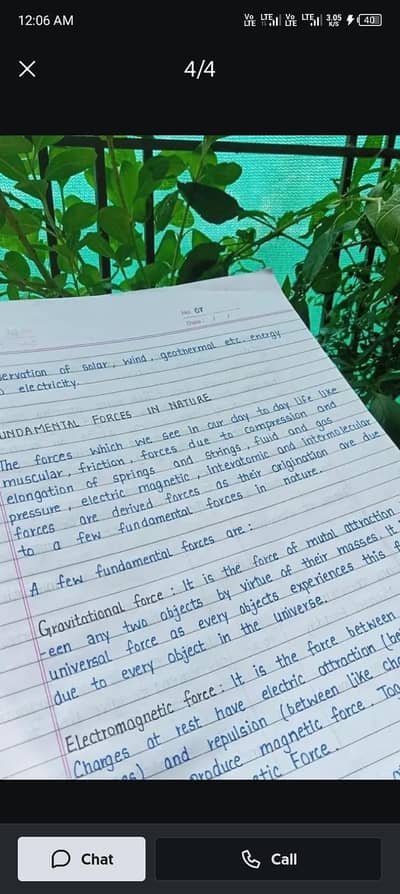 12:06 AM
Vo LTE LTE Vo LTE LTE 3.05 K/S 40
4/4
No. 07
Date: / /
servation of solar, wind, geothermal etc. energy
electricity.
UNDAMENTAL FORCES IN NATURE
The forces which we see in our day to day life like
muscular, friction, forces due to compression and
elongation of springs and strings, fluid and gas
pressure, electric magnetic, Interatomic and intermolecular
forces are derived forces as their origination are due
to a few fundamental forces in nature.
A few fundamental forces are :
Gravitational force : It is the force of mutal attraction
-een any two objects by virtue of their masses. It
universal force as every objects experiences this f
due to every object in the universe.
Electromagnetic force : It is the force between
Charges at rest have electric attraction (be
es) and repulsion (between like cha
produce magnetic force. Tog
tic Force.
Chat
Call